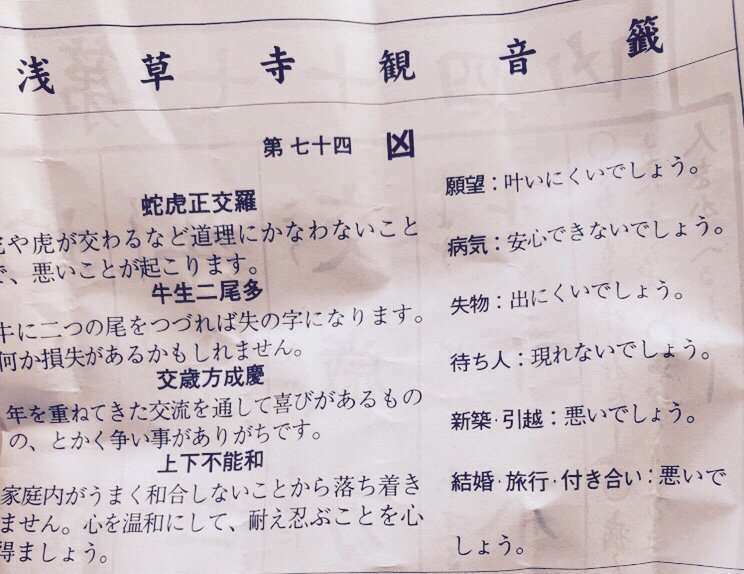 浅草寺観音籤
第七十四 凶
蛇虎正交羅
や虎が交わるなど道理にかなわないこと
で、悪いことが起こります。
牛生二尾多
牛に二つの尾をつづれば失の字になります。
何か損失があるかもしれません。
交歳方成慶
年を重ねてきた交流を通して喜びがあるもの
の、とかく争い事がありがちです。
上下不能和
家庭内がうまく和合しないことから落ち着き
ません。心を温和にして、耐え忍ぶことを心
得ましょう。
願望：叶いにくいでしょう。
病気：安心できないでしょう。
失物：出にくいでしょう。
待ち人：現れないでしょう。
新築・引越：悪いでしょう。
結婚・旅行・付き合い：悪いで
しょう。